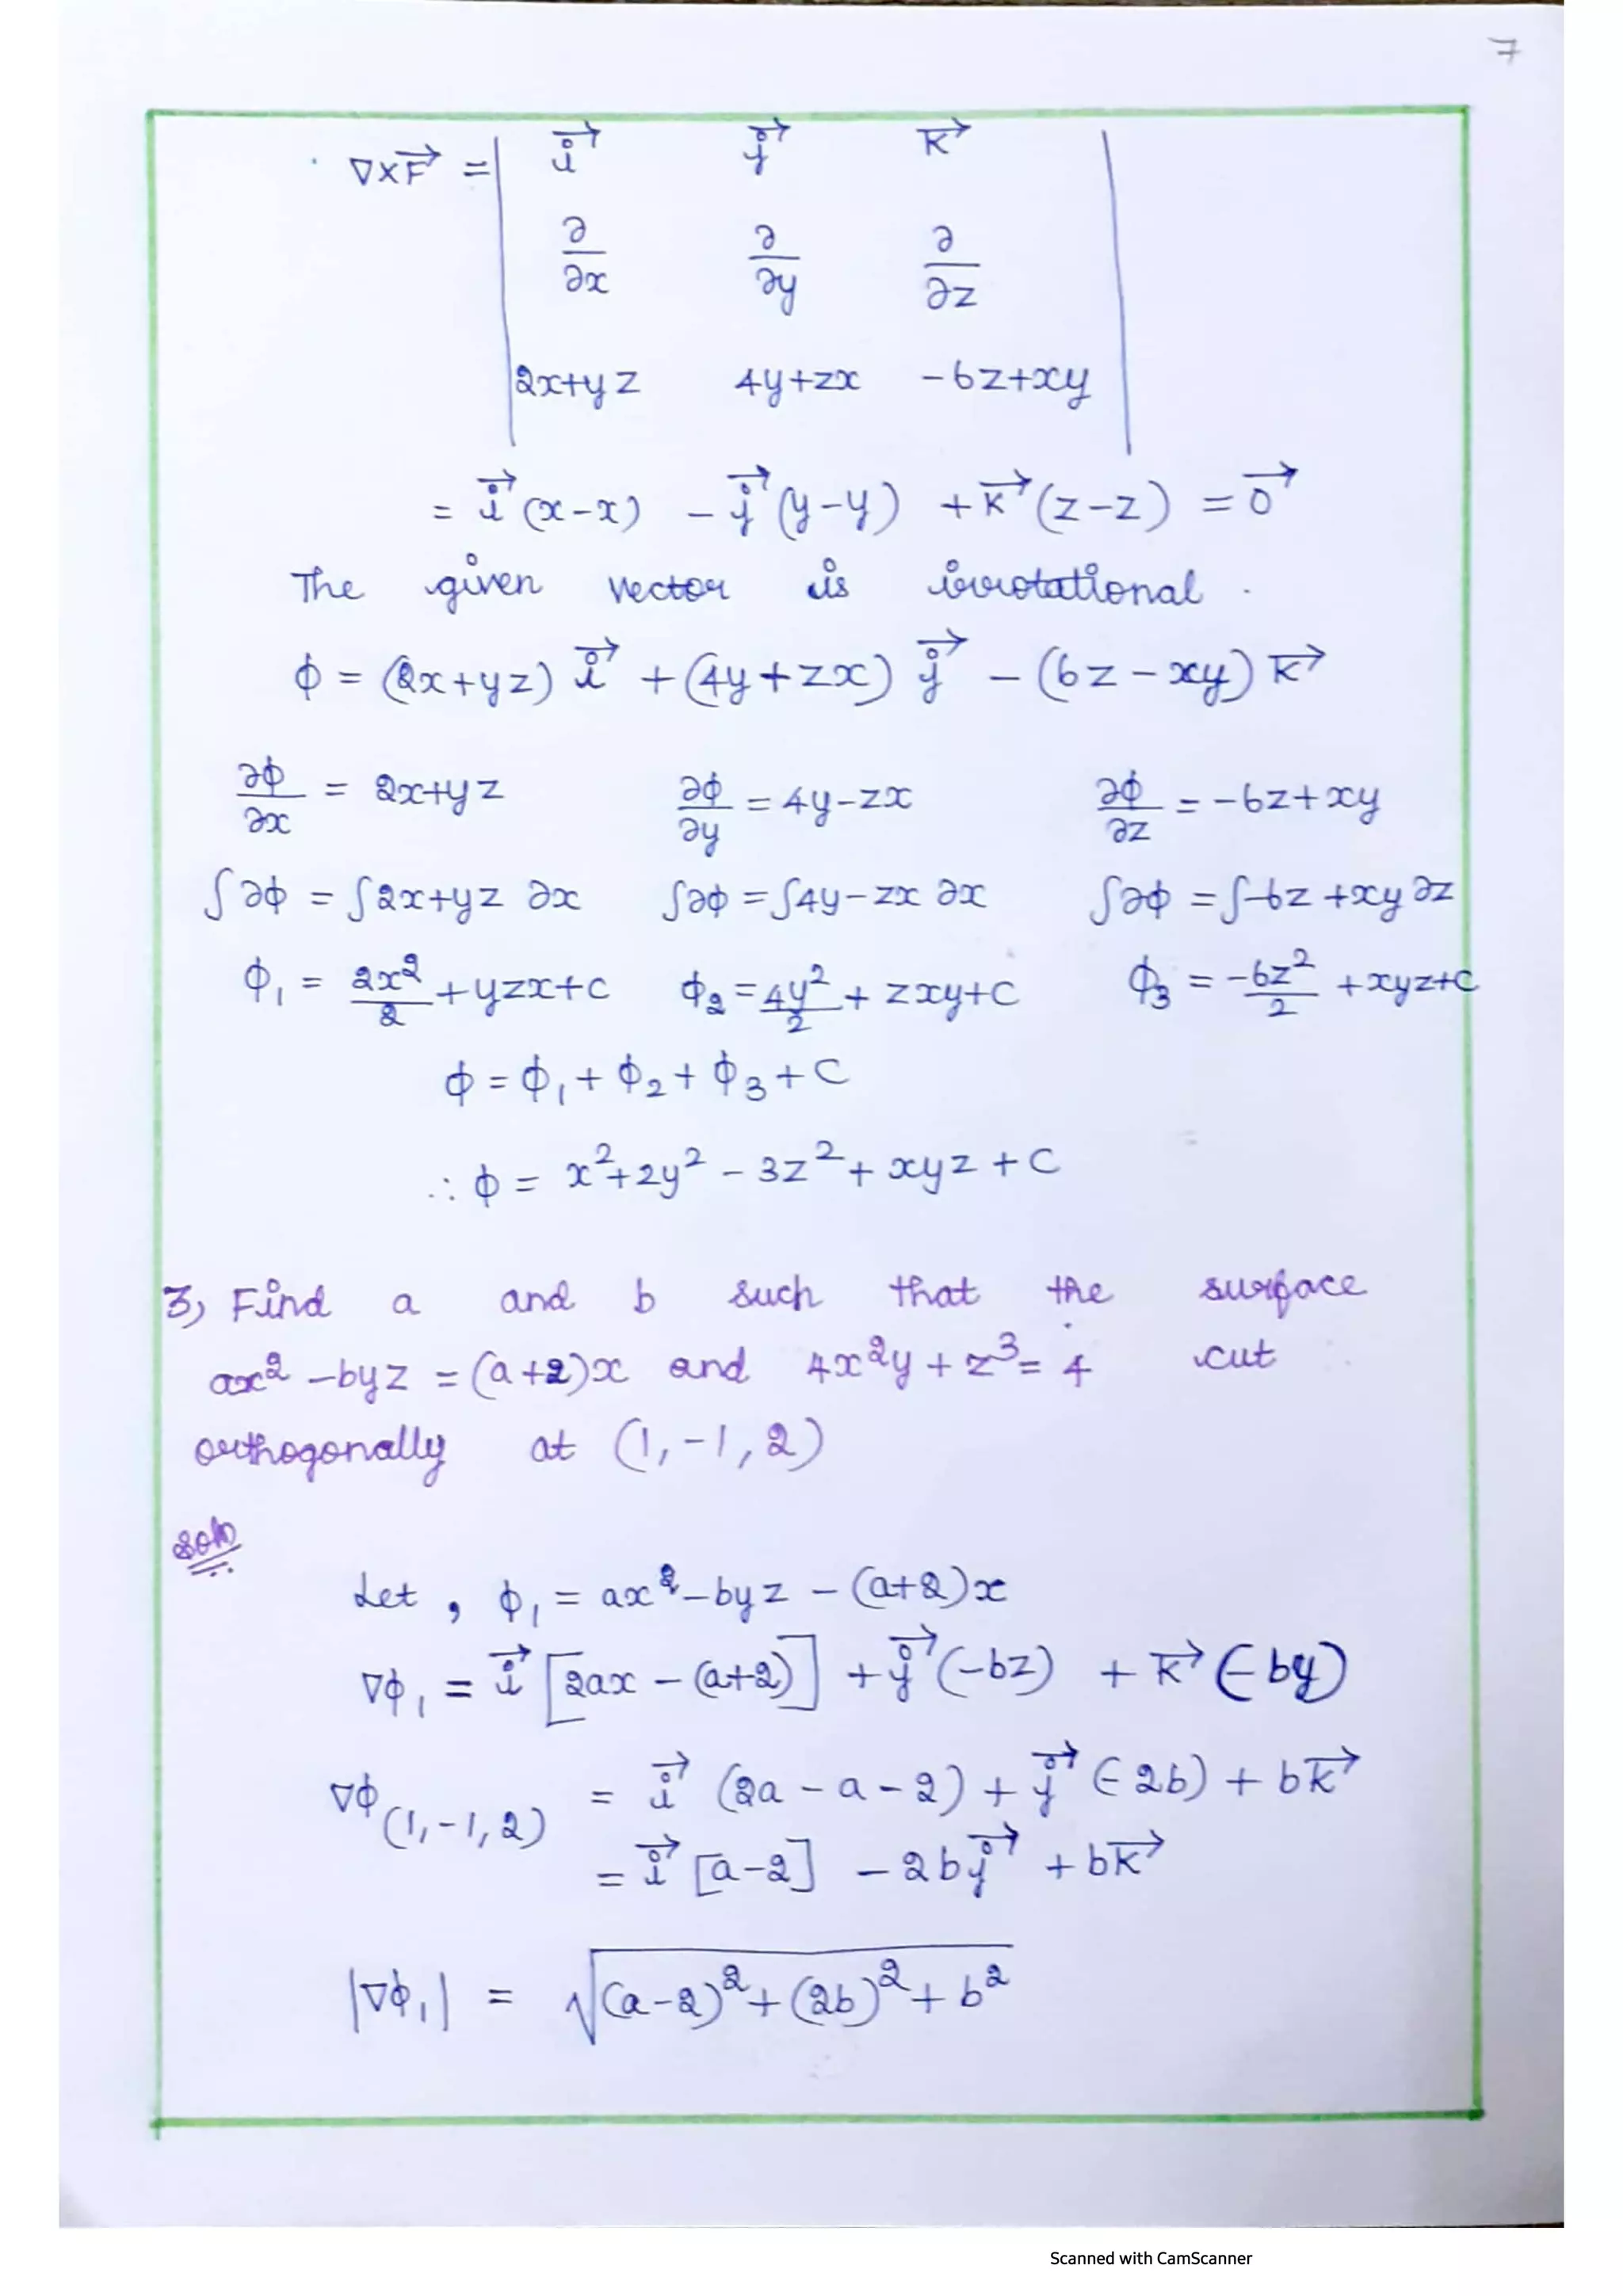 7
∇×F⃗ = | i⃗ j⃗ k⃗ |
∂/∂x ∂/∂y ∂/∂z
2x+yz 4y+zx -6z+xy
= i⃗(x-x) - j⃗(y-y) + k⃗(z-z) = 0⃗
The given vector is irrotational.
ϕ = (2x+yz) i⃗ + (4y+zx) j⃗ - (6z-xy) k⃗
∂ϕ/∂x = 2x+yz ∂ϕ/∂y = 4y-zx ∂ϕ/∂z = -6z+xy
∫∂ϕ = ∫2x+yz ∂x ∫∂ϕ = ∫4y-zx ∂x ∫∂ϕ = ∫-6z+xy ∂z
ϕ₁ = 2x²/2 + yzx+c ϕ₂ = 4y²/2 + zxy+c ϕ₃ = -6z²/2 + xyz+c
ϕ = ϕ₁ + ϕ₂ + ϕ₃ + c
∴ ϕ = x²+2y² - 3z² + xyz + c
3) Find a and b such that the surface
ax² - byz = (a+2)x and 4x²y + z³ = 4 cut
orthogonally at (1, -1, 2)
soln
Let, ϕ₁ = ax² - byz - (a+2)x
∇ϕ₁ = i⃗ [2ax - (a+2)] + j⃗(-bz) + k⃗(-by)
∇ϕ(1,-1,2) = i⃗ (2a - a - 2) + j⃗(-2b) + bk⃗
= i⃗ [a-2] - 2bj⃗ + bk⃗
|∇ϕ₁| = √((a-2)² + (2b)² + b²)
Scanned with CamScanner